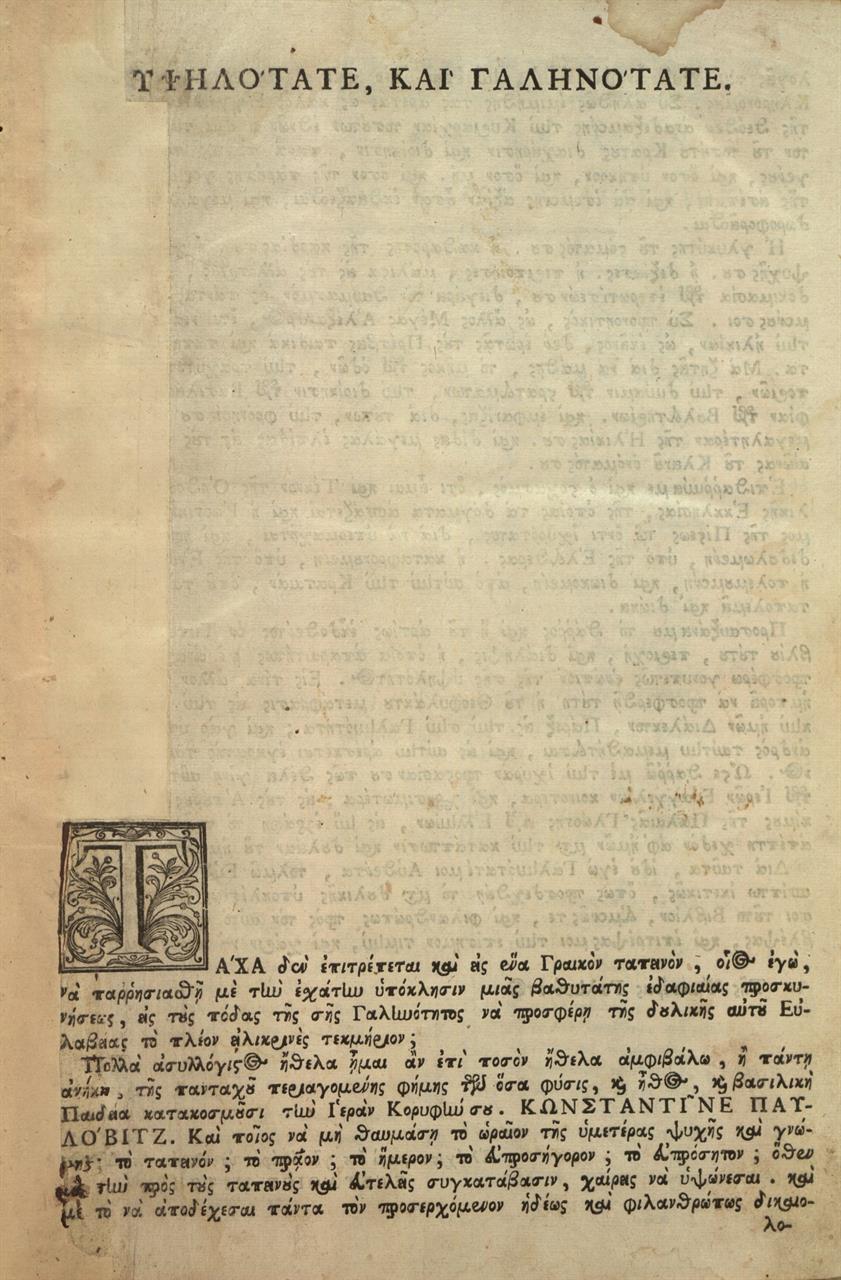 ΥΨΗΛΟʹΤΑΤΕ, ΚΑῚ ΓΑΛΗΝΟʹΤΑΤΕ.
ΤΑʹΧΑ δὲν ἐπιτρέπεται καὶ εἰς ἕνα Γραικὸν ταπεινὸν, οἷος ἐγὼ,
νὰ παῤῥησιασθῇ μὲ τὴν ἐχάτην ὑπόκλησιν μιᾶς βαθυτάτης ἐδαφιαίας προσκυ-
νήσεως, εἰς τοὺς πόδας τῆς σῆς Γαληνότητος νὰ προσφέρῃ τῆς δουλικῆς αὐτοῦ Εὐ-
λαβείας τὸ πλέον εἰλικρινὲς τεκμήριον;
Πολλὰ ἀσυλλόγιστος ἤθελα ἦμαι ἂν ἐπὶ ποσὸν ἤθελα ἀμφιβάλω, ἢ πάντη
ἀνήκω, τῆς πανταχοῦ περιαγομένης φήμης τῶν ὅσα φύσις, καὶ ἦθος, καὶ βασιλικὴ
Παιδεία κατακοσμοῦσι τὴν Ἱερὰν Κορυφήν σου. ΚΩΝΣΤΑΝΤΙ͂ΝΕ ΠΑΥ-
ΛΟʹΒΙΤΖ. Καὶ ποῖος νὰ μὴ θαυμάσῃ τὸ ὡραῖον τῆς ὑμετέρας ψυχῆς καὶ γνώ-
μης; τὸ ταπεινόν; τὸ πρᾷον; τὸ ἥμερον; τὸ εὐπροσήγορον; τὸ εὐπρόσητον; ὅθεν
μὲ τὴν πρὸς τοὺς ταπεινοὺς καὶ εὐτελεῖς συγκατάβασιν, χαίρεις νὰ ὑψώνεσαι. καὶ
μὲ τὸ νὰ ἀποδέχεσαι πάντα τὸν προσερχόμενον ἡδέως καὶ φιλανθρώπως δικαιο-
λο-